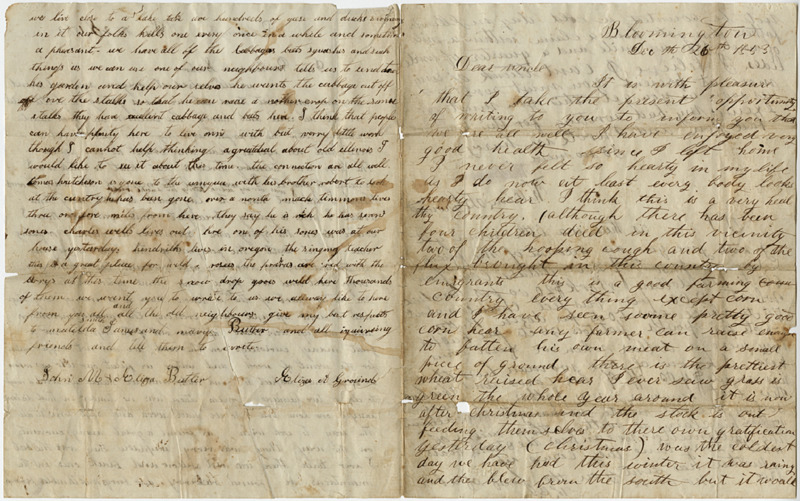 we live close to a lake there are hundreds of geese and ducks swiming
in it our folks kills one every once in a while and sometimes
a pheasant. we have all of the Cabbages buts squashes and such
things as we can use one of our neighbours tells us to send to
his garden and help our selves he wants the cabbage cut off
of ove the stalks so that he can raise a nother crop on the same
stalks they had excellent cabbage and buts here. I think that people
can have plenty here to live on with but verry little work
though I canhot help thinking a greatdeal about old illinois I
would like to see it about this time. the connexion are all well
tomas hutcheson is gone to the umqua with his brother robert to look
at the cuntry he has been gone over a month mack lemmons lives
three on four miles from here they say he is rich he has seven
sones. charles wells lives out here one of his sones was at our
house yesterday, hendrith lives in oregon the singing teacher
this is a great place for wild roses the prairies are red with the
berrys at this time the snow drop grows wild here thousands
of them we want you to write to us we allways like to here
from you all and all the old neighbours give my best respects
to matilda James and mariar Butler and all inquireing
friends and tell them to write
John M & Eliza Butler Eliza at Ground
Bloomington
Dec th 26th 1853
Dear uncle
It is with pleasure
that I take the present opportunity
of writing to you to inform you that
we are all well I have injoyed very
good health since I left home
I never felt so hearty in my life
as I do now at least every body looks
hearty hear I think this is a very heal
thy country. (although there has been
four children died in this vicinity
two of the hooping cough and two of the
flux brought in this country by
emigrants this is a good farming coun
Country every thing except corn
and I have seen soome pretty good
corn hear any farmer can raise enough
to fatten his own meat on a small
piece of ground there is the prettiest
wheat raised hear I ever saw grass is
green the whole year around it is now
after christmas and the stock is out
feeding themselves to there own gratification
yesterday (christmas) was the coldest
day we have had this winter it was raining
and the blew from the south but it would